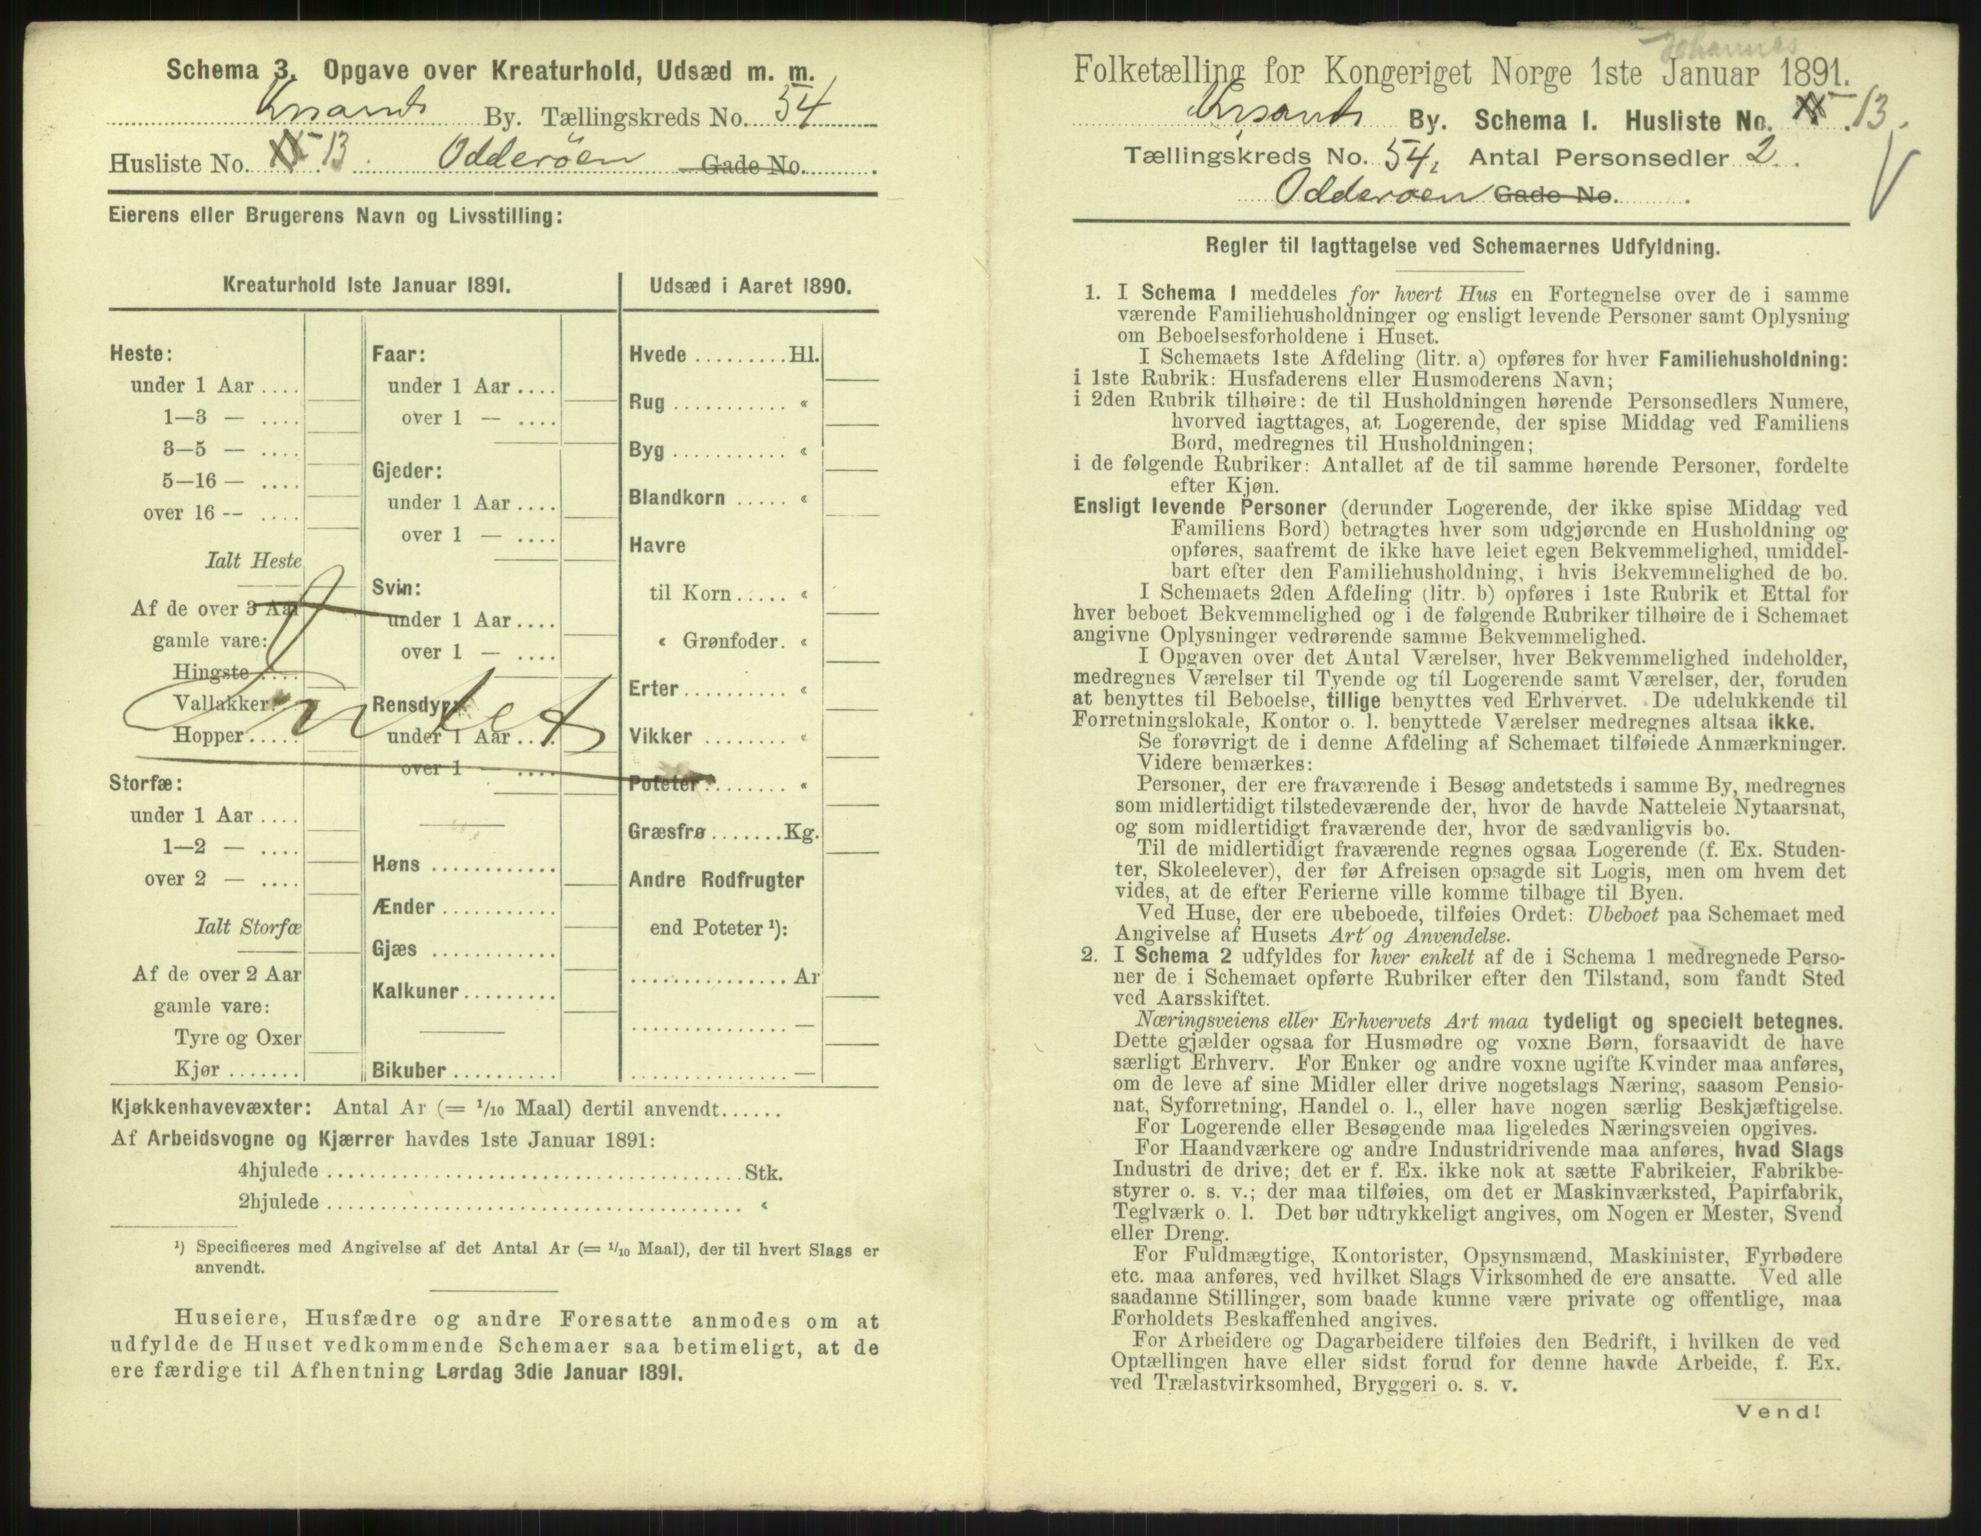 Schema 3. Opgave over Kreaturhold, Udsæd m. m.
Krsands By. Tællingskreds No. 54
Husliste No. 13. Odderøen Gade No.
Eierens eller Brugerens Navn og Livsstilling:
Kreaturhold 1ste Januar 1891.
Heste:
under 1 Aar ....
1—3 — ....
3—5 — ....
5—16 — ....
over 16 -- ....
Ialt Heste
Af de over 3 Aar
gamle vare:
Hingste ....
Vallakker
Hopper .....
Storfæ:
under 1 Aar ....
1—2 — ....
over 2 — ....
Ialt Storfæ
Af de over 2 Aar
gamle vare:
Tyre og Oxer
Kjør .......
Faar:
under 1 Aar ....
over 1 — ....
Gjeder:
under 1 Aar ....
over 1 — ....
Svin:
under 1 Aar ....
over 1 — ....
Rensdyr:
under 1 Aar ....
over 1 ....
Høns ............
Ænder ...........
Gjæs ............
Kalkuner .........
Bikuber ..........
Intet
Udsæd i Aaret 1890.
Hvede ......... Hl.
Rug ........... «
Byg ........... «
Blandkorn ..... «
Havre
til Korn ..... «
« Grønfoder. «
Erter .......... «
Vikker ........ «
Poteter ........ «
Græsfrø ....... Kg.
Andre Rodfrugter
end Poteter ¹):
............... Ar
............... —
............... —
Kjøkkenhavevæxter: Antal Ar (= 1/10 Maal) dertil anvendt ......
Af Arbeidsvogne og Kjærrer havdes 1ste Januar 1891:
4hjulede ..................................... Stk.
2hjulede ..................................... «
¹) Specificeres med Angivelse af det Antal Ar (= 1/10 Maal), der til hvert Slags er
anvendt.
Huseiere, Husfædre og andre Foresatte anmodes om at
udfylde de Huset vedkommende Schemaer saa betimeligt, at de
ere færdige til Afhentning Lørdag 3die Januar 1891.
Johannes
Folketælling for Kongeriget Norge 1ste Januar 1891.
Krsands By. Schema I. Husliste No. 13.
Tællingskreds No. 54, Antal Personsedler 2.
Odderøen Gade No.
Regler til Iagttagelse ved Schemaernes Udfyldning.
1. I Schema 1 meddeles for hvert Hus en Fortegnelse over de i samme
værende Familiehusholdninger og ensligt levende Personer samt Oplysning
om Beboelsesforholdene i Huset.
I Schemaets 1ste Afdeling (litr. a) opføres for hver Familiehusholdning:
i 1ste Rubrik: Husfaderens eller Husmoderens Navn;
i 2den Rubrik tilhøire: de til Husholdningen hørende Personsedlers Numere,
hvorved iagttages, at Logerende, der spise Middag ved Familiens
Bord, medregnes til Husholdningen;
i de følgende Rubriker: Antallet af de til samme hørende Personer, fordelte
efter Kjøn.
Ensligt levende Personer (derunder Logerende, der ikke spise Middag ved
Familiens Bord) betragtes hver som udgjørende en Husholdning og
opføres, saafremt de ikke have leiet egen Bekvemmelighed, umiddel-
bart efter den Familiehusholdning, i hvis Bekvemmelighed de bo.
I Schemaets 2den Afdeling (litr. b) opføres i 1ste Rubrik et Ettal for
hver beboet Bekvemmelighed og i de følgende Rubriker tilhøire de i Schemaet
angivne Oplysninger vedrørende samme Bekvemmelighed.
I Opgaven over det Antal Værelser, hver Bekvemmelighed indeholder,
medregnes Værelser til Tyende og til Logerende samt Værelser, der, foruden
at benyttes til Beboelse, tillige benyttes ved Erhvervet. De udelukkende til
Forretningslokale, Kontor o. l. benyttede Værelser medregnes altsaa ikke.
Se forøvrigt de i denne Afdeling af Schemaet tilføiede Anmærkninger.
Videre bemærkes:
Personer, der ere fraværende i Besøg andetsteds i samme By, medregnes
som midlertidigt tilstedeværende der, hvor de havde Natteleie Nytaarsnat,
og som midlertidigt fraværende der, hvor de sædvanligvis bo.
Til de midlertidigt fraværende regnes ogsaa Logerende (f. Ex. Studen-
ter, Skoleelever), der før Afreisen opsagde sit Logis, men om hvem det
vides, at de efter Ferierne ville komme tilbage til Byen.
Ved Huse, der ere ubeboede, tilføies Ordet: Ubeboet paa Schemaet med
Angivelse af Husets Art og Anvendelse.
2. I Schema 2 udfyldes for hver enkelt af de i Schema 1 medregnede Perso-
ner de i Schemaet opførte Rubriker efter den Tilstand, som fandt Sted
ved Aarsskiftet.
Næringsveiens eller Erhvervets Art maa tydeligt og specielt betegnes.
Dette gjælder ogsaa for Husmødre og voxne Børn, forsaavidt de have
særligt Erhverv. For Enker og andre voxne ugifte Kvinder maa anføres,
om de leve af sine Midler eller drive nogetslags Næring, saasom Pensio-
nat, Syforretning, Handel o. l., eller have nogen særlig Beskjæftigelse.
For Logerende eller Besøgende maa ligeledes Næringsveien opgives.
For Haandværkere og andre Industridrivende maa anføres, hvad Slags
Industri de drive; det er f. Ex. ikke nok at sætte Fabrikeier, Fabrikbe-
styrer o. s. v.; der maa tilføies, om det er Maskinværksted, Papirfabrik,
Teglværk o. l. Det bør udtrykkeligt angives, om Nogen er Mester, Svend
eller Dreng.
For Fuldmægtige, Kontorister, Opsynsmænd, Maskinister, Fyrbødere
etc. maa anføres, ved hvilket Slags Virksomhed de ere ansatte. Ved alle
saadanne Stillinger, som baade kunne være private og offentlige, maa
Forholdets Beskaffenhed angives.
For Arbeidere og Dagarbeidere tilføies den Bedrift, i hvilken de ved
Optællingen have eller sidst forud for denne havde Arbeide, f. Ex.
ved Trælastvirksomhed, Bryggeri o. s. v.
Vend!